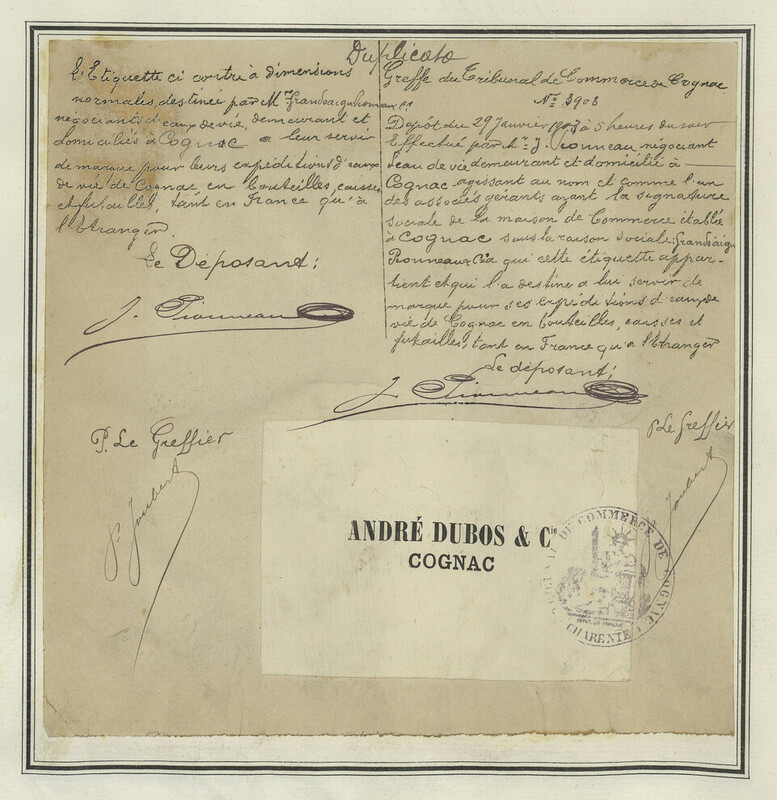 Duplicata
L'Etiquette ci contre à dimensions
normales, destinée par M
négociants d'eaux de vie, demeurant et
domiciliés à Cognac a leur servir
de marque pour leurs expéditions d'eaux
de vie de Cognac en bouteilles, caisses
et futailles, tant en France qu'à
l'Etranger.
Le Déposant;
P. Le Greffier
Greffe du Tribunal de Commerce de Cognac
No 3908
Dépôt du 29 Janvier à 5 heures du soir
Effectué par négociant
d'eau de vie demeurant et domicilié à
Cognac, agissant au nom et comme l'un
des associés gérants ayant la signature
sociale de la maison de Commerce établie
à Cognac sous la raison sociale;
qui cette étiquette appar-
tient et qui l'a destine a lui servir de
marque pour ses expéditions d'eaux de
vie de Cognac en bouteilles, caisses et
futailles, tant en France qu'a l'Etranger
Le déposant;
P. Le Greffier
ANDRÉ DUBOS & Cie
COGNAC
TRIBUNAL DE COMMERCE DE COGNAC
CHARENTE